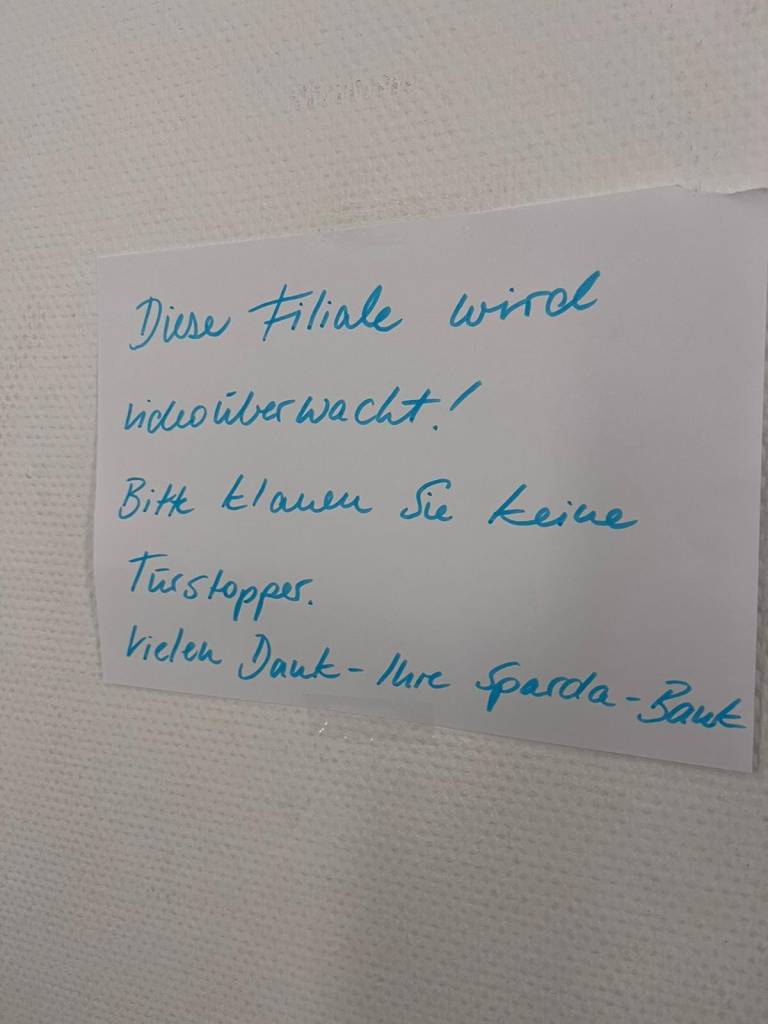 Diese Filiale wird
videoüberwacht!
Bitte klauen Sie keine
Türstopper.
Vielen Dank - Ihre Sparda-Bank